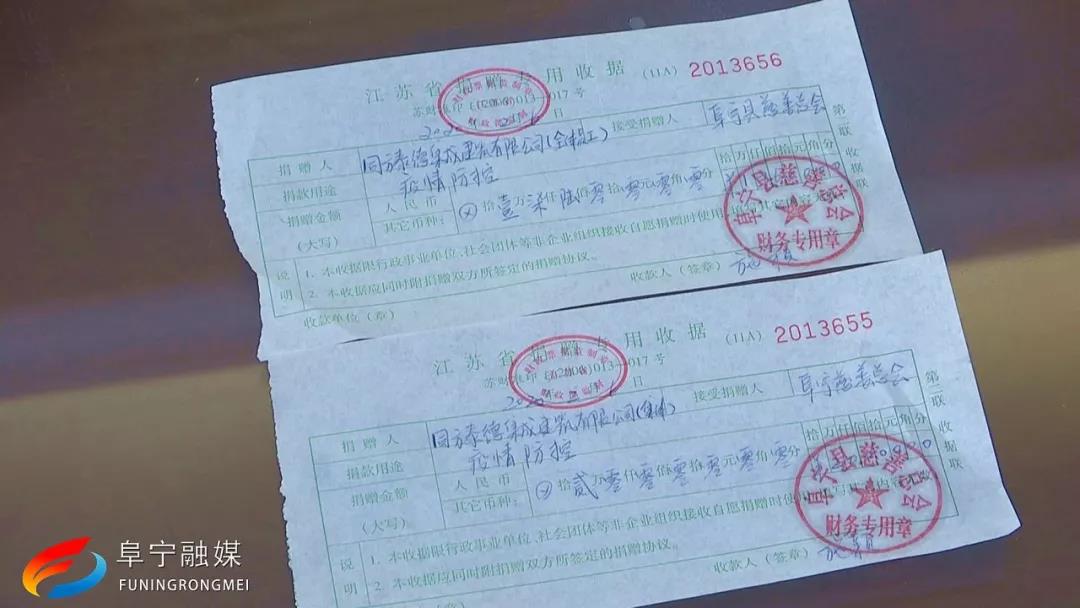 江苏省捐赠专用收据 (11A) 2013656
013—017号
日
捐赠人 同方泰德集成建筑有限公司(全体员工) 接受捐赠人 阜宁县慈善总会
捐款用途 疫情防控
捐赠金额 (大写) 人民币 其它币种: ⊗拾壹万柒仟陆佰零拾零元零角零分 拾万仟佰拾元角分
说明 1. 本收据限行政事业单位、社会团体等非企业组织接收自愿捐赠时使用
2. 本收据应同时附捐赠双方所签定的捐赠协议。
收款单位(章) 收款人(签章)
第二联 收据联
阜宁县慈善总会
财务专用章
江苏省捐赠专用收据 (11A) 2013655
013—017号
日
捐赠人 同方泰德集成建筑有限公司 接受捐赠人 阜宁慈善总会
捐款用途 疫情防控
捐赠金额 (大写) 人民币 其它币种: ⊗拾贰万零仟零佰零拾零元零角零分 拾万仟佰拾元角分
说明 1. 本收据限行政事业单位、社会团体等非企业组织接收自愿捐赠时使用
2. 本收据应同时附捐赠双方所签定的捐赠协议。
收款人(签章)
第二联 收据联
阜宁县慈善总会
财务专用章
阜宁融媒
FUNINGRONGMEI